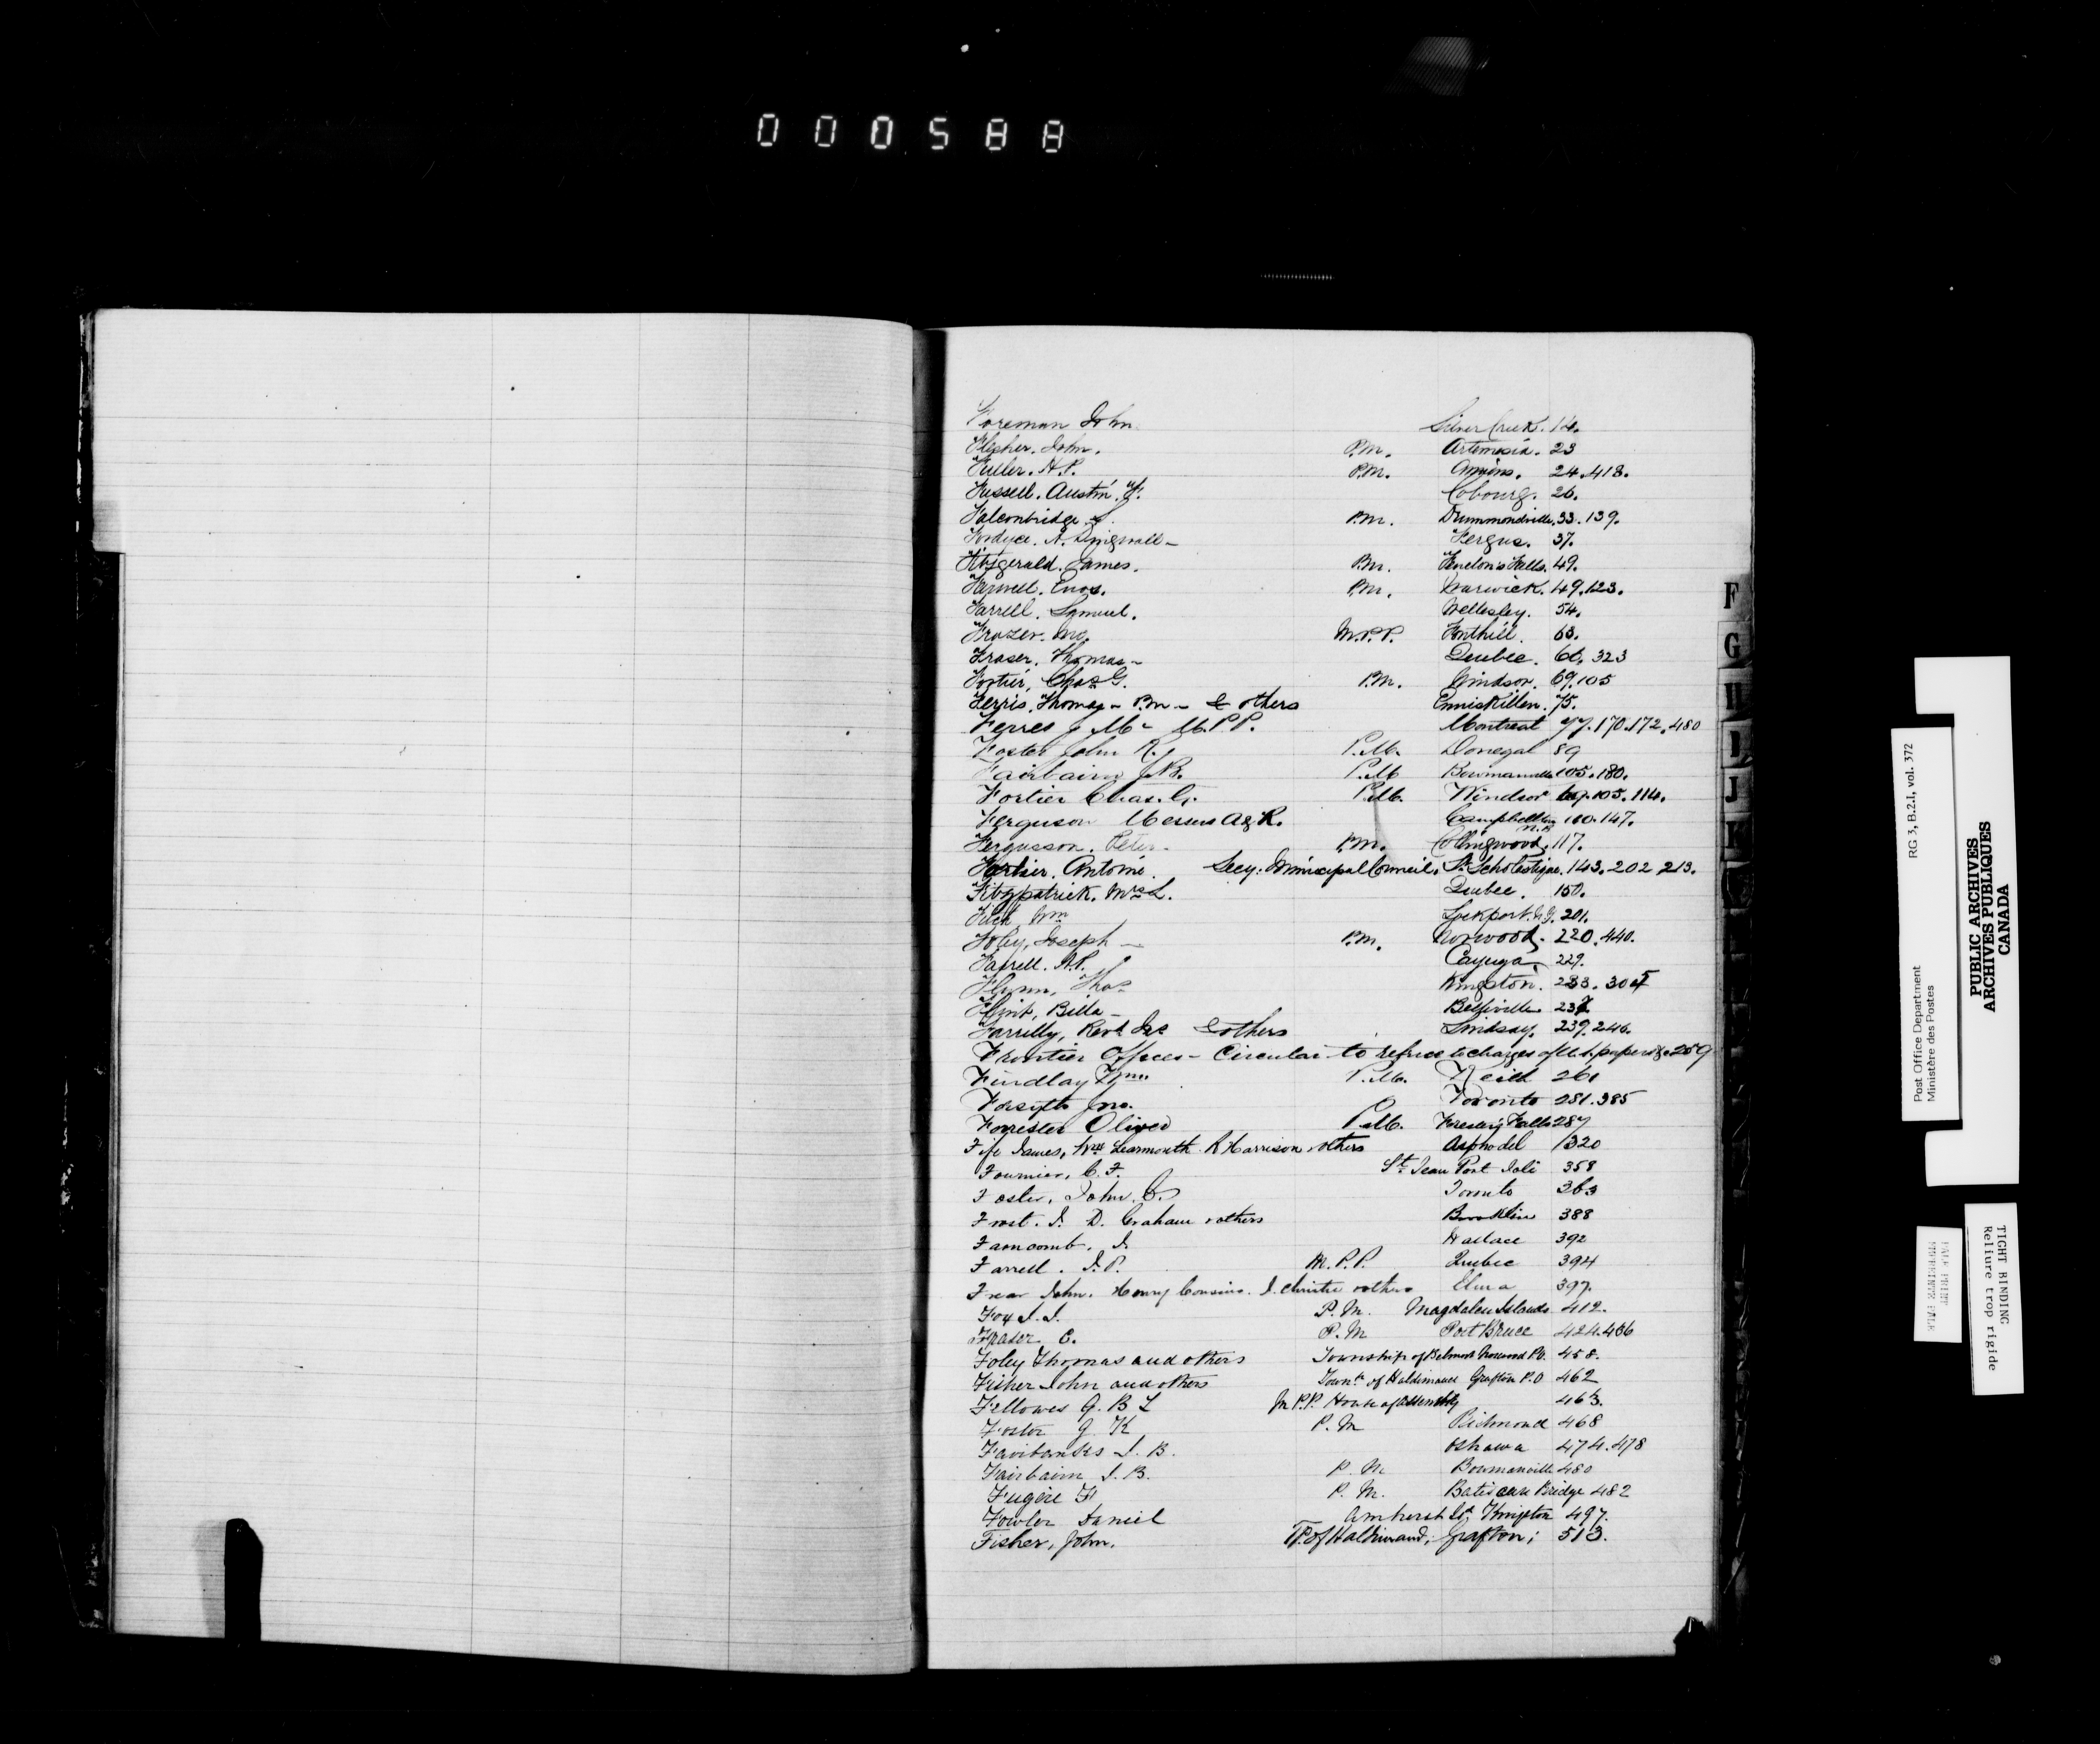 000588
Foreman John Silver Creek. 14.
Flesher. John. P.M. Artemesia. 23
Fuller. H.P. P.M. 24.418.
Fussell. Austin. Y. Cobourg. 26.
Falconbridge P.M. Drummondville. 33.139.
Fordyce. A. Dingwall - Fergus. 37.
Fitzgerald. James. P.M. Fenelon's Falls. 49.
Farwell. Enos. P.M. Warwick. 49.123.
Farrell. Samuel. Wellesley. 54.
Frazer. Jno. M.P.P. Fonthill. 63.
Fraser. Thomas - Quebec. 66. 323
Fortier, Chas G. P.M. Windsor. 69.105
Ferris, Thomas - P.M - & others Enniskillen. 75.
Ferres J. Mc - M.P.P. Montreal 77.170.172.480
Foster John R. P.M. Donegal 89
Fairbairn J.B. P.M Bowmanville 105.180.
Fortier Chas. G. P.M. Windsor 69.105.114.
Ferguson Messrs A & R. Campbellton N.B 100.147.
Fergusson. Peter - P.M. Collingwood. 117.
Fortier. Antoine. Secy. Municipal Council. St. Scholastique. 143.202.213.
Fitzpatrick. Mrs L. Quebec. 150.
Fitch Wm Lockport. N.Y. 201.
Foley, Joseph - P.M. Norwood. 220.440.
Farrell. A.P. Cayuga 229.
Flynn, Thos Kingston. 233. 304
Flint, Billa - Belleville 237
Farrelly, Revd Jas & others Lindsay. 239.246.
Frontier Offices - Circular to refuse to charges of U.S. papers &c 259
Findlay Wm P.M. Neill 261
Forsyth Jno. Toronto 281.385
Forrester Oliver P.M. Falls 287
Fife James, Wm Learmouth. R Harrison & others Asphodel 320
Fournier, C. F. St. Jean Port Joli 358
Foster, John C. Toronto 363
Frost. J. D. Graham & others Brooklin 388
Famcomb, J. Wallace 392
Farrell. J.P. M.P.P. Quebec 394
Frear John. Henry Cousins. J. Christie & others Elma 397.
Fox J.J. P.M. Magdalen Islands 412.
Fraser C. P.M Port Bruce 424.466
Foley Thomas and others Township of Belmont Norwood P.O. 458.
Fisher John and others Townp of Haldimand Grafton P.O 462
Fellowes G. B L M P.P. House of Assembly 463.
Foster J K P.M Richmond 468
Fairbanks J. B. Oshawa 474.478
Fairbairn J. B. P.M Bowmanville 480
Fugère F P.M. Batiscan Bridge 482
Fowler Daniel Amherst Isd. Kingston 497.
Fisher, John. Tp. of Haldimand, Grafton; 513.
F
G
H
I
J
K
Post Office Department RG 3, B.2.1, vol. 372
Ministère des Postes
PUBLIC ARCHIVES
ARCHIVES PUBLIQUES
CANADA
TIGHT BINDING
Reliure trop rigide